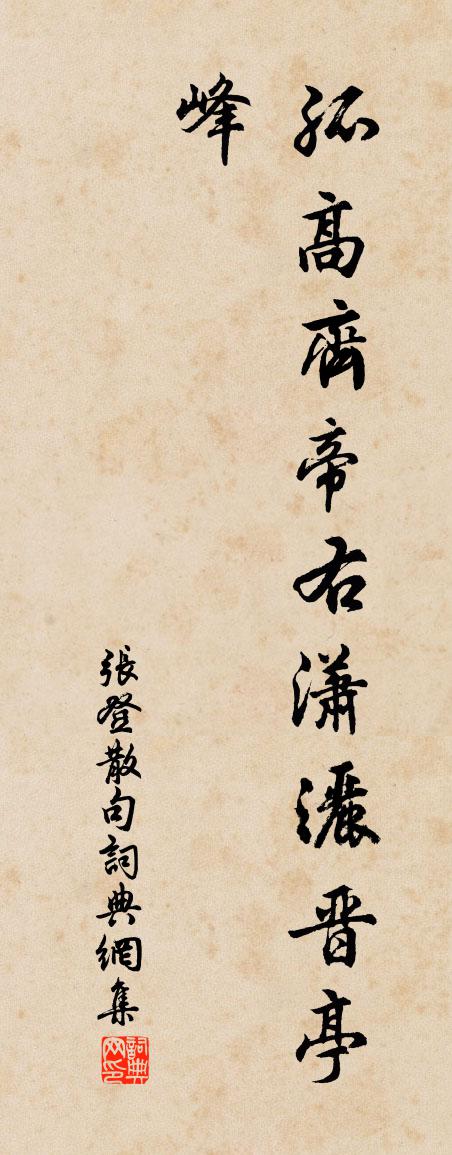 孤高齊帝右瀟灑晋亭
峰
張登散句詞典網集
詞典网印